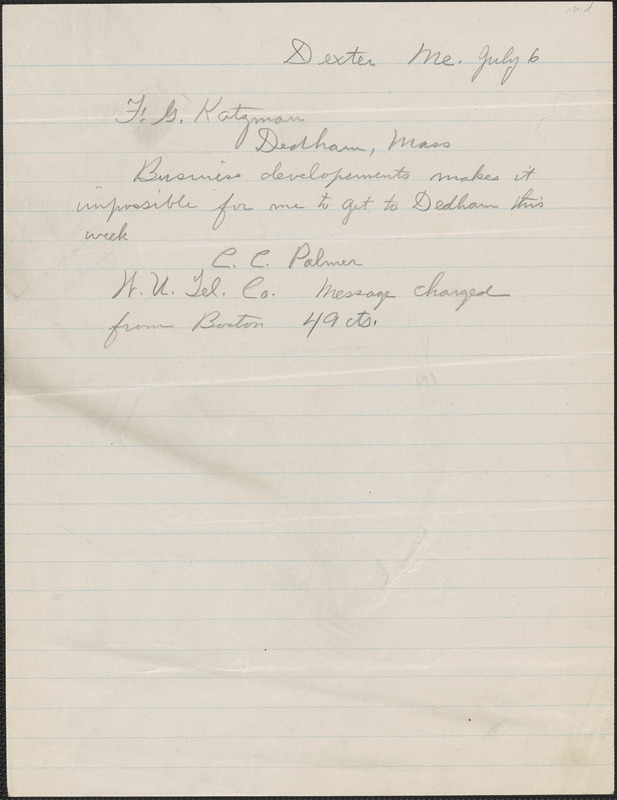 nd
Dexter Me. July 6
F. G. Katzman
Dedham, Mass
Business developements makes it
impossible for me to get to Dedham this
week
C. C. Palmer
W. U. Tel. Co. Message charged
from Boston 49 cts.